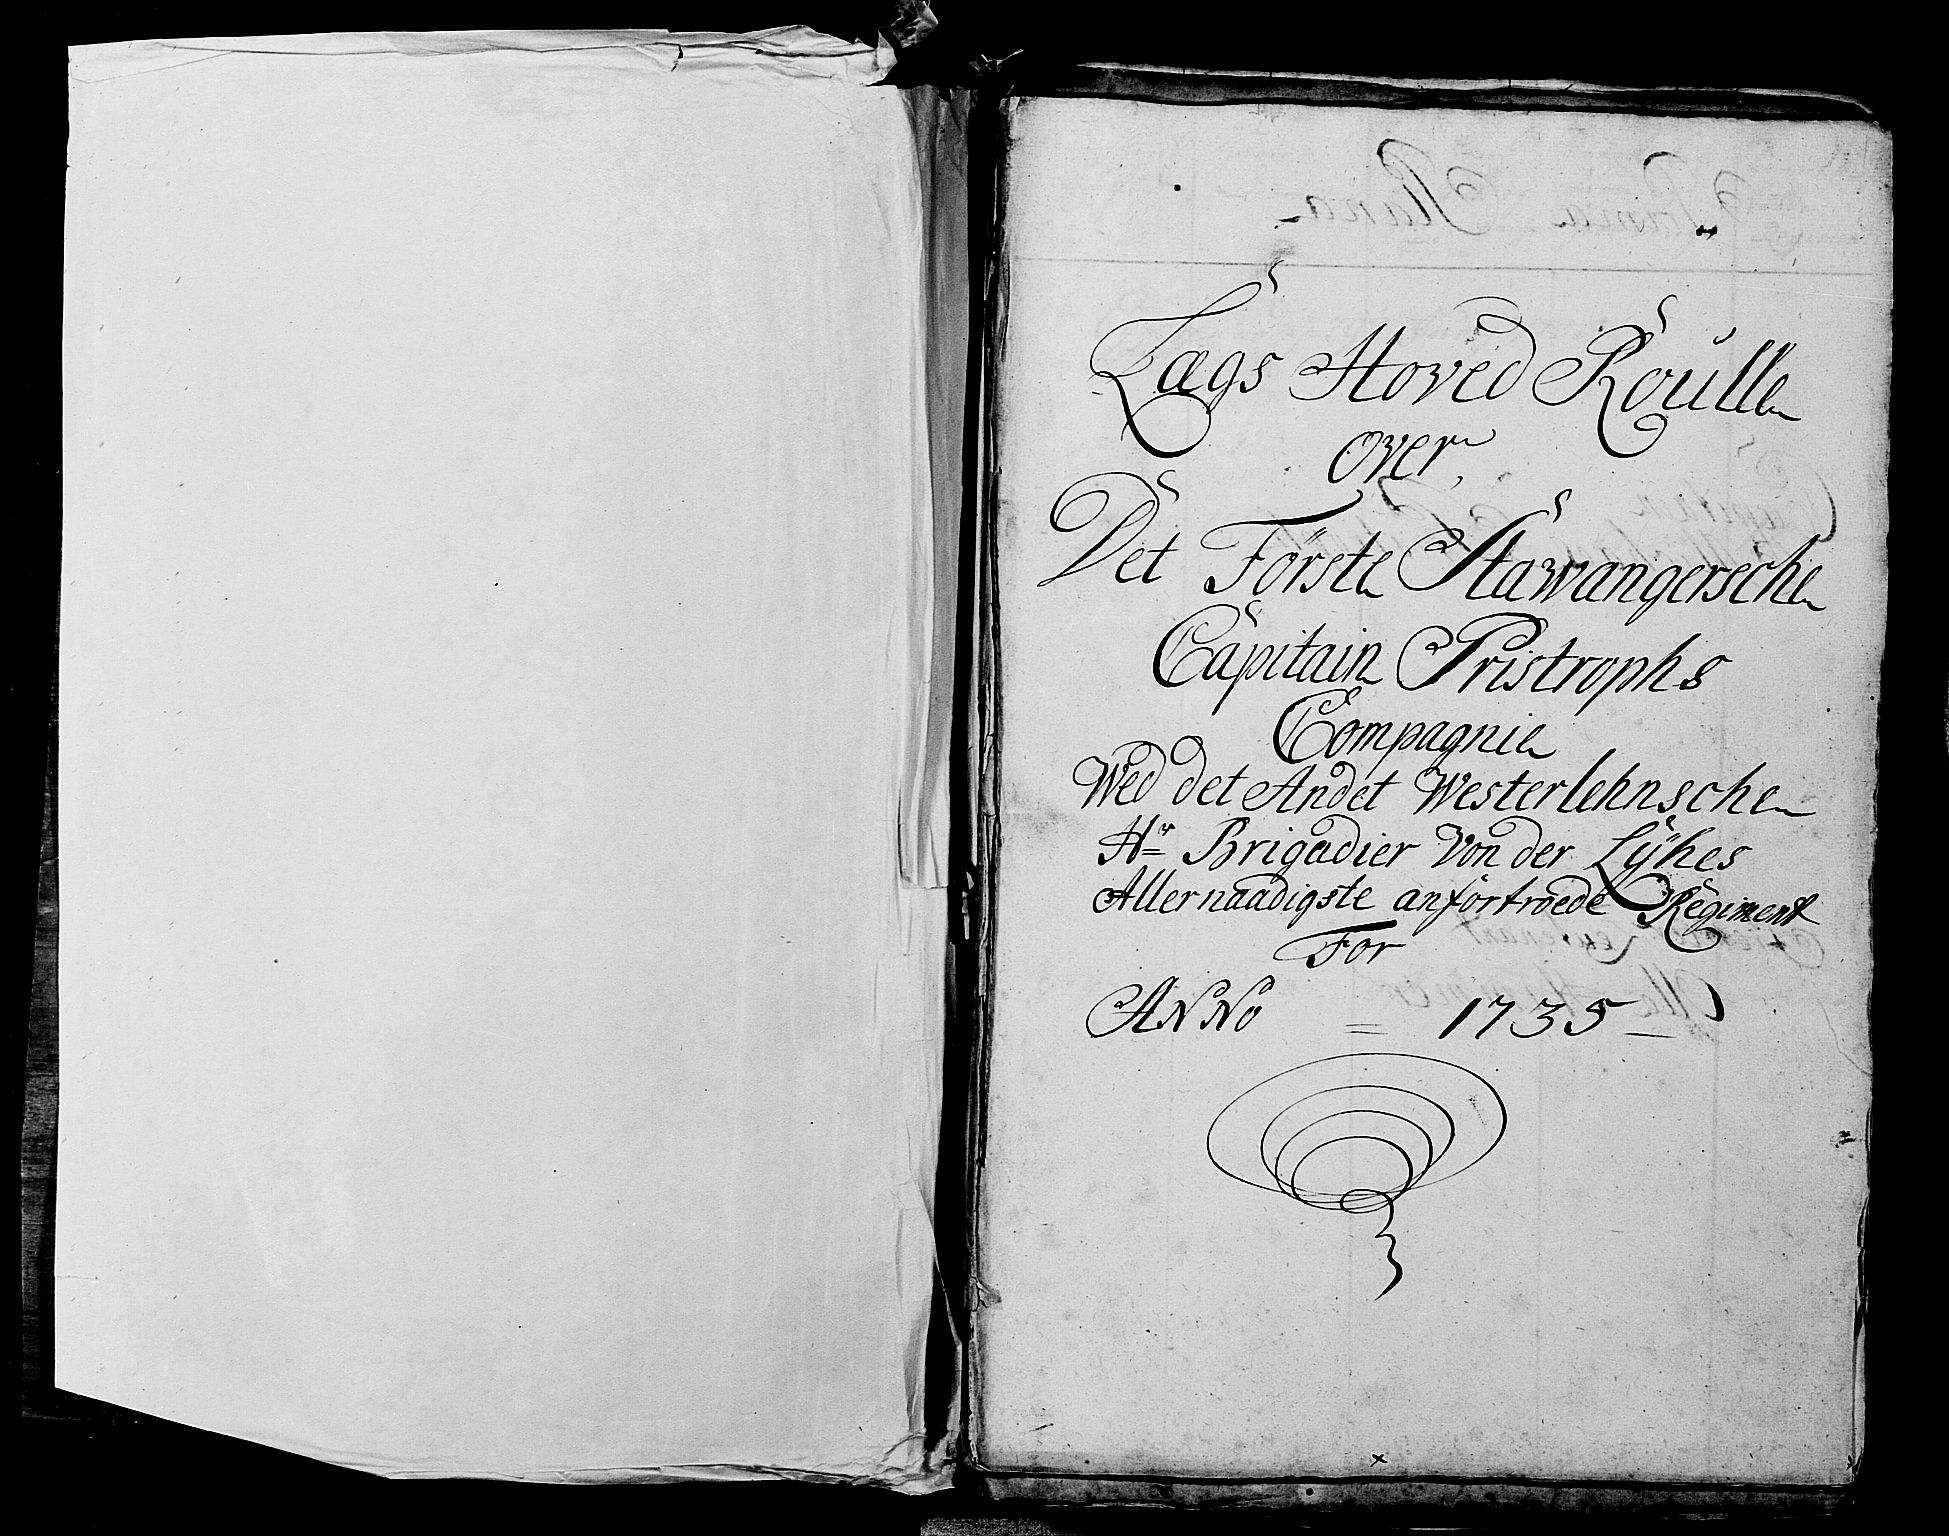 Lægs Hoved Roulle
over
Det Förste Stawangersche
Capitain Pristrophs
Compagnie
Wed det Andet Westerlehnsche
Hr Brigadier Von der Lÿhes
Allernaadigste anfortroede Regiment
For
ANNo = 1735